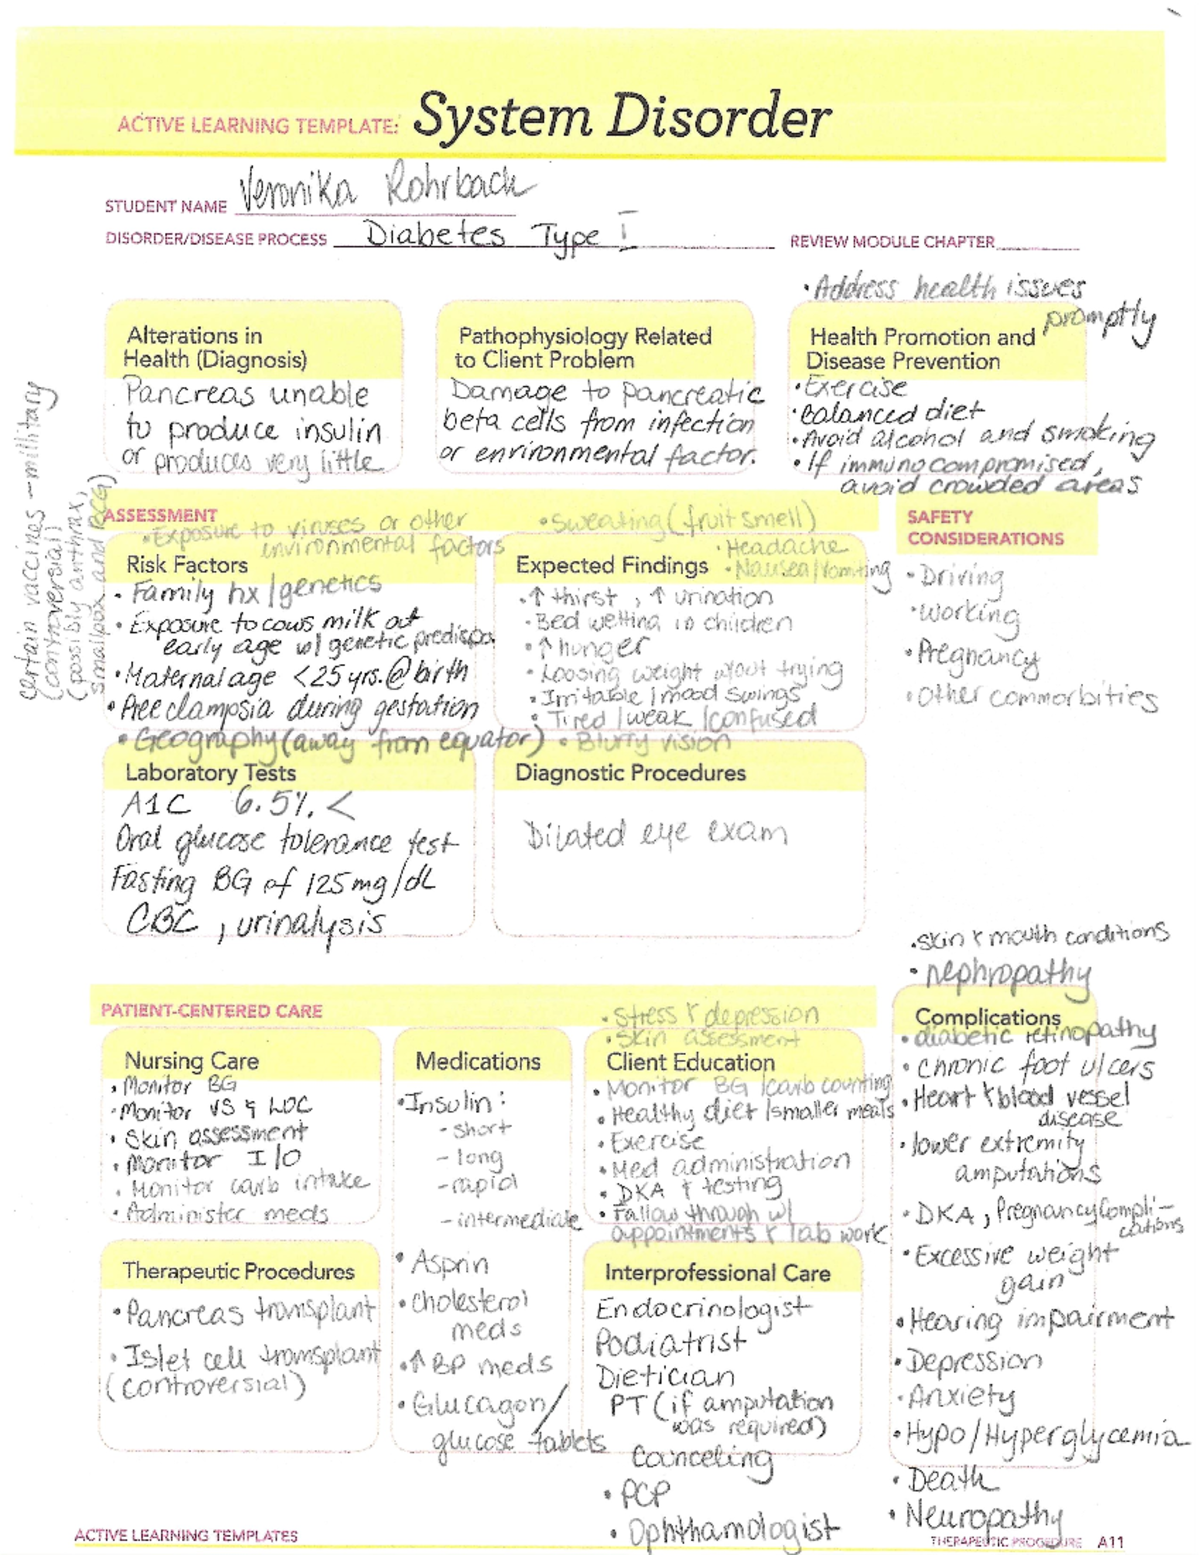 ACTIVE LEARNING TEMPLATE: System Disorder
STUDENT NAME Veronika Rohrback
DISORDER/DISEASE PROCESS Diabetes Type I
REVIEW MODULE CHAPTER
• Address health issues promptly
Alterations in
Health (Diagnosis)
Pancreas unable
to produce insulin
or produces very little
Pathophysiology Related
to Client Problem
Damage to pancreatic
beta cells from infection
or environmental factor.
Health Promotion and
Disease Prevention
• Exercise
• Balanced diet
• Avoid alcohol and smoking
• If immunocompromised,
avoid crowded areas
certain vaccines - millitary
(controversial)
(possibly anthrax,
smallpox and BCG)
ASSESSMENT
• Exposure to viruses or other
environmental factors
Risk Factors
• Family hx/genetics
• Exposure to cows milk at
early age w/ genetic predispo.
• Maternal age <25 yrs. @ birth
• Preeclampsia during gestation
• Geography (away from equator)
• Sweating (fruit smell)
• Headache
• Nausea/vomiting
Expected Findings
• ↑ thirst, ↑ urination
• Bed wetting in children
• ↑ hunger
• Loosing weight w/out trying
• Irritable/mood swings
• Tired/weak/confused
• Blurry vision
SAFETY
CONSIDERATIONS
• Driving
• Working
• Pregnancy
• Other commorbities
Laboratory Tests
A1C 6.5% <
Oral glucose tolerance test
Fasting BG of 125 mg/dL
CBC, urinalysis
Diagnostic Procedures
Dilated eye exam
PATIENT-CENTERED CARE
Nursing Care
• Monitor BG
• Monitor VS & LOC
• Skin assessment
• Monitor I/O
• Monitor carb intake
• Administer meds
Medications
• Insulin:
- short
- long
- rapid
- intermediate
• Asprin
• cholesterol
meds
• ↑ BP meds
• Glucagon/
glucose tablets
• Stress & depression
• Skin assessment
Client Education
• Monitor BG/carb counting
• Healthy diet/smaller meals
• Exercise
• Med administration
• DKA & testing
• Follow through w/
appointments & lab work
Therapeutic Procedures
• Pancreas transplant
• Islet cell transplant
(controversial)
Interprofessional Care
Endocrinologist
Podiatrist
Dietician
PT (if amputation
was required)
Counceling
• PCP
• Ophthamologist
• skin & mouth conditions
• nephropathy
Complications
• diabetic retinopathy
• chronic foot ulcers
• Heart & blood vessel
disease
• lower extremity
amputations
• DKA, Pregnancy Compli-
cations
• Excessive weight
gain
• Hearing impairment
• Depression
• Anxiety
• Hypo/Hyperglycemia
• Death
• Neuropathy
ACTIVE LEARNING TEMPLATES
THERAPEUTIC PROCEDURE A11